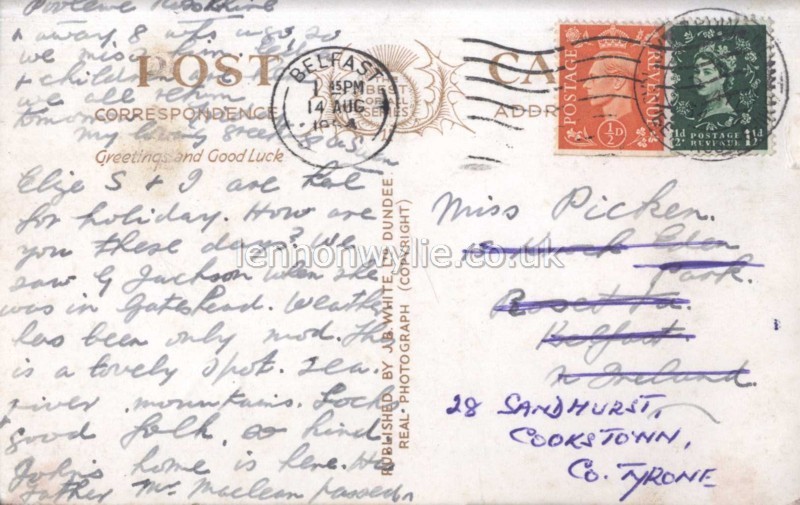 Poolewe Ross-shire
away 8 wks ago so
we miss him.
& children are
we all
tomorrow
my loving
POST CARD
BEST OF ALL SERIES
CORRESPONDENCE
ADDRESS
Greetings and Good Luck
BELFAST
15PM
14 AUG
POSTAGE
REVENUE
½D
POSTAGE
REVENUE
1½D
Elize S & I are here
for holiday. How are
you these days? We
saw G Jackson when she
was in Gateshead. Weather
has been only mod. This
is a lovely spot. Sea.
river. mountains. Loch
good folk, so kind
John's home is here. His
father Mr Maclean passed
PUBLISHED BY J.B. WHITE LTD DUNDEE.
REAL PHOTOGRAPH (COPYRIGHT)
lennonwylie.co.uk
Miss Picken.
Park.
Belfast
N Ireland.
28 SANDHURST,
COOKSTOWN,
CO. TYRONE